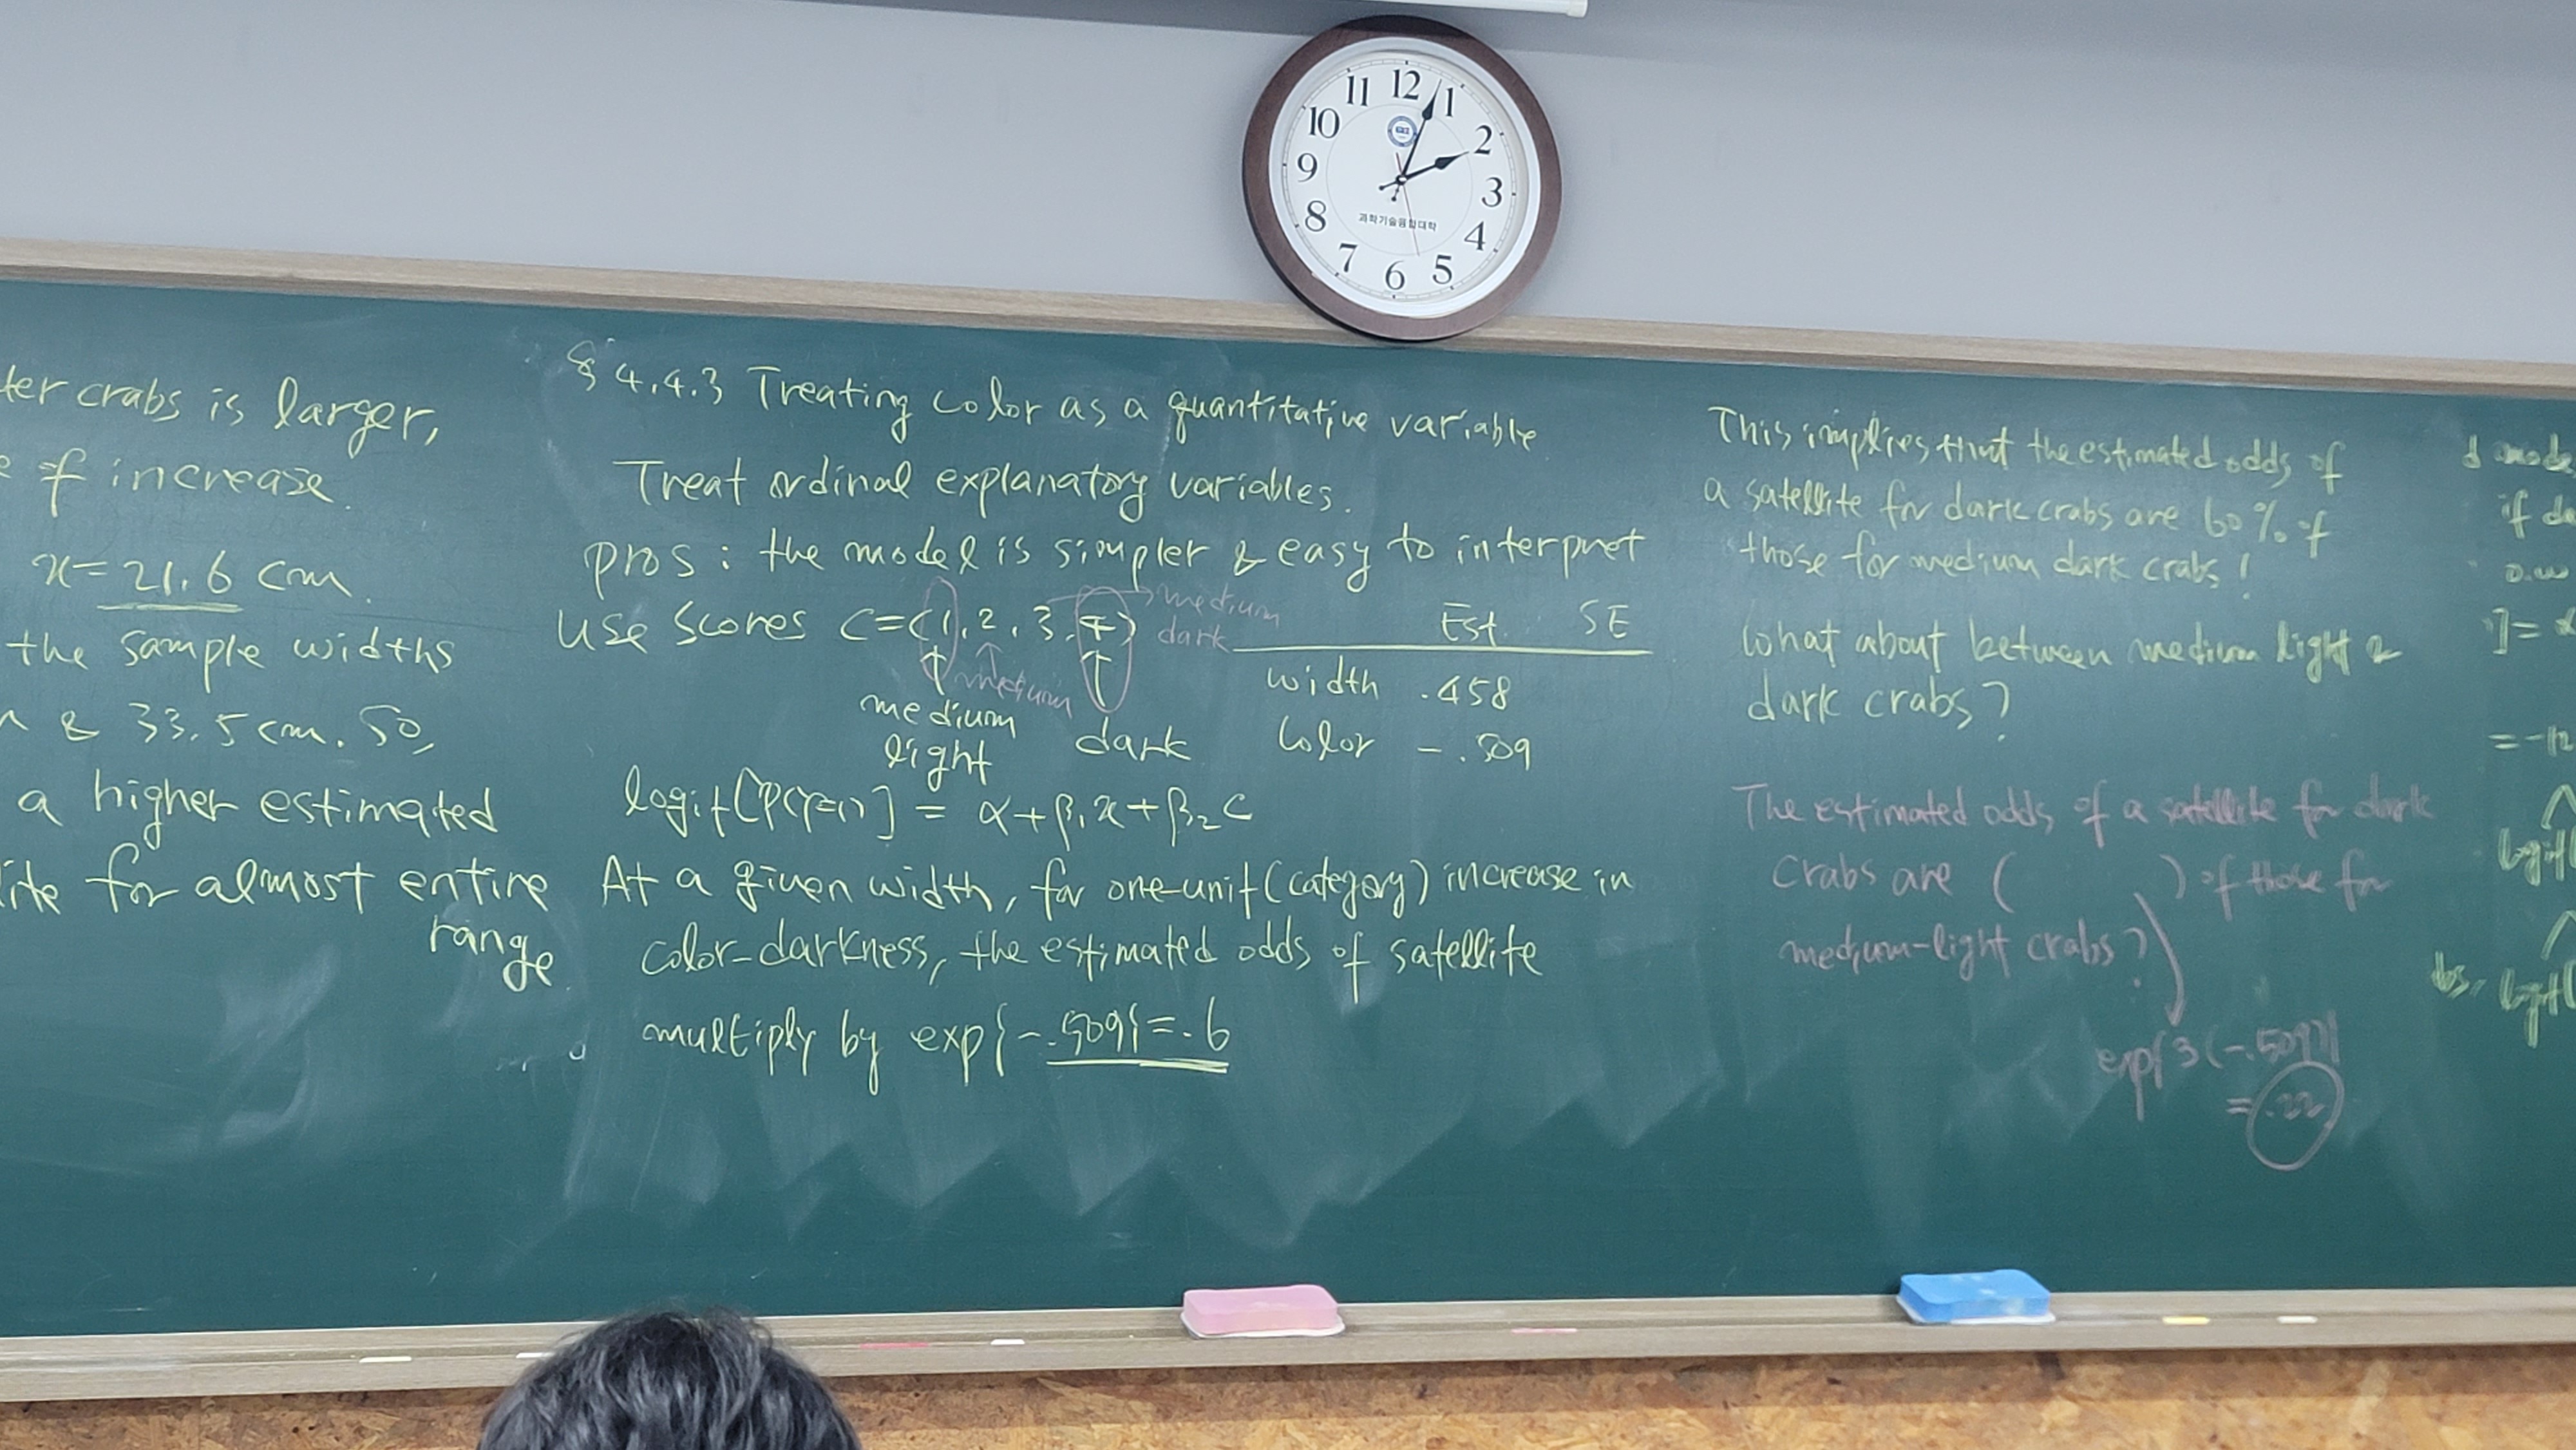 12
1
2
3
4
5
6
7
8
9
10
11
과학기술융합대학
ter crabs is larger,
e of increase.
x = 21.6 cm.
the sample widths
& 33.5 cm. 50,
a higher estimated
ite for almost entire
range.
§ 4.4.3 Treating color as a quantitative variable
Treat ordinal explanatory variables.
pros : the model is simpler & easy to interpret
use scores C=(1, 2, 3, 4)
medium
dark
medium
medium
light
dark
Est. SE
width .458
color -.509
logit[P(Y=1)] = α+β₁x+β₂c
At a given width, for one-unit (category) increase in
color-darkness, the estimated odds of satellite
multiply by exp{-.509} = .6
This implies that the estimated odds of
a satellite for dark crabs are 60% of
those for medium dark crabs!
What about between medium light &
dark crabs?
The estimated odds of a satellite for dark
crabs are ( ) of those for
medium-light crabs?
exp{3(-.509)}
= .22
if da
]=
= -12
logit(
logit(